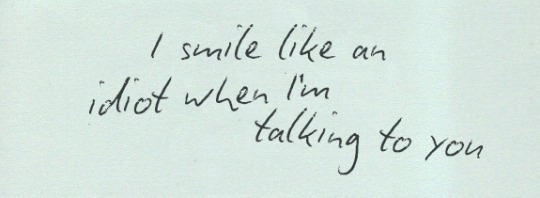 I smile like an
idiot when I'm
talking to you